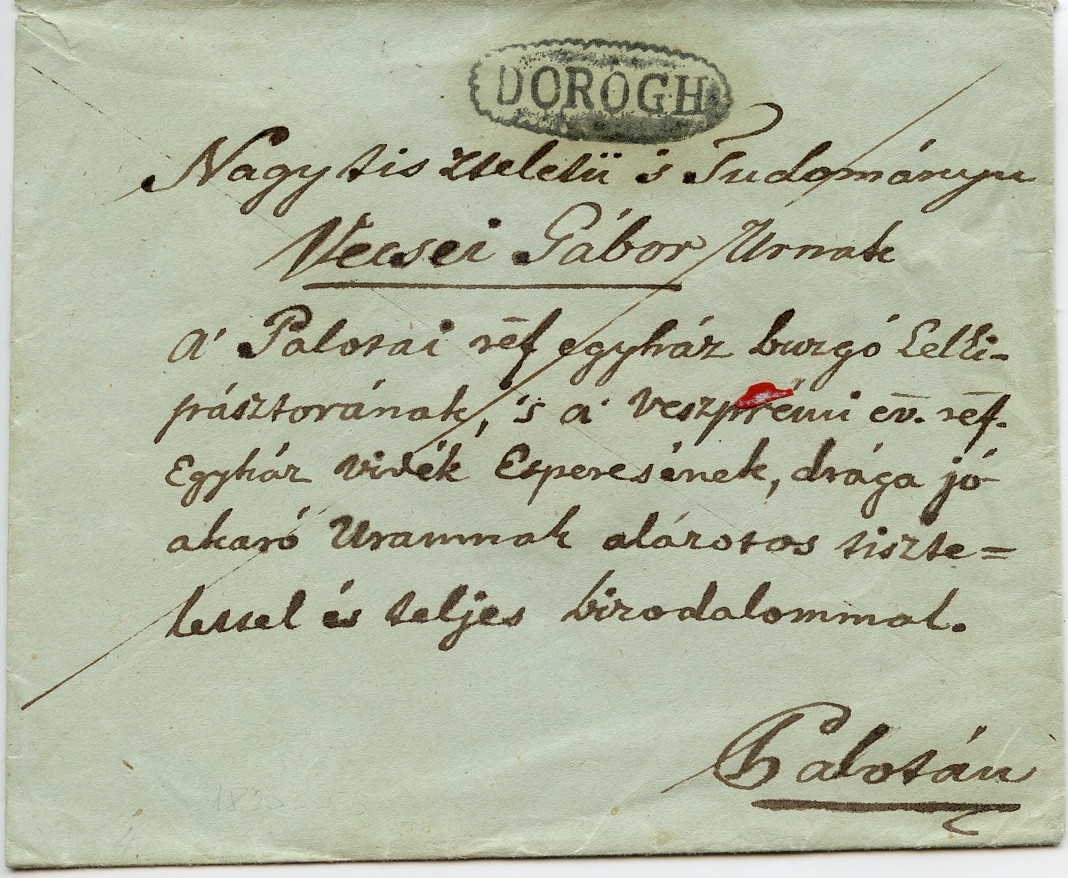 DOROGH
Nagytiszteletü 's Tudományu
Vecsei Gábor Urnak
A' Palotai réf egyház buzgó Lelki-
pásztorának, 's a' Veszprémi ev. ref.
Egyház vidék Esperesének, drága jó
akaró Uramnak alázatos tiszte=
lettel és teljes bizodalommal.
Palotán